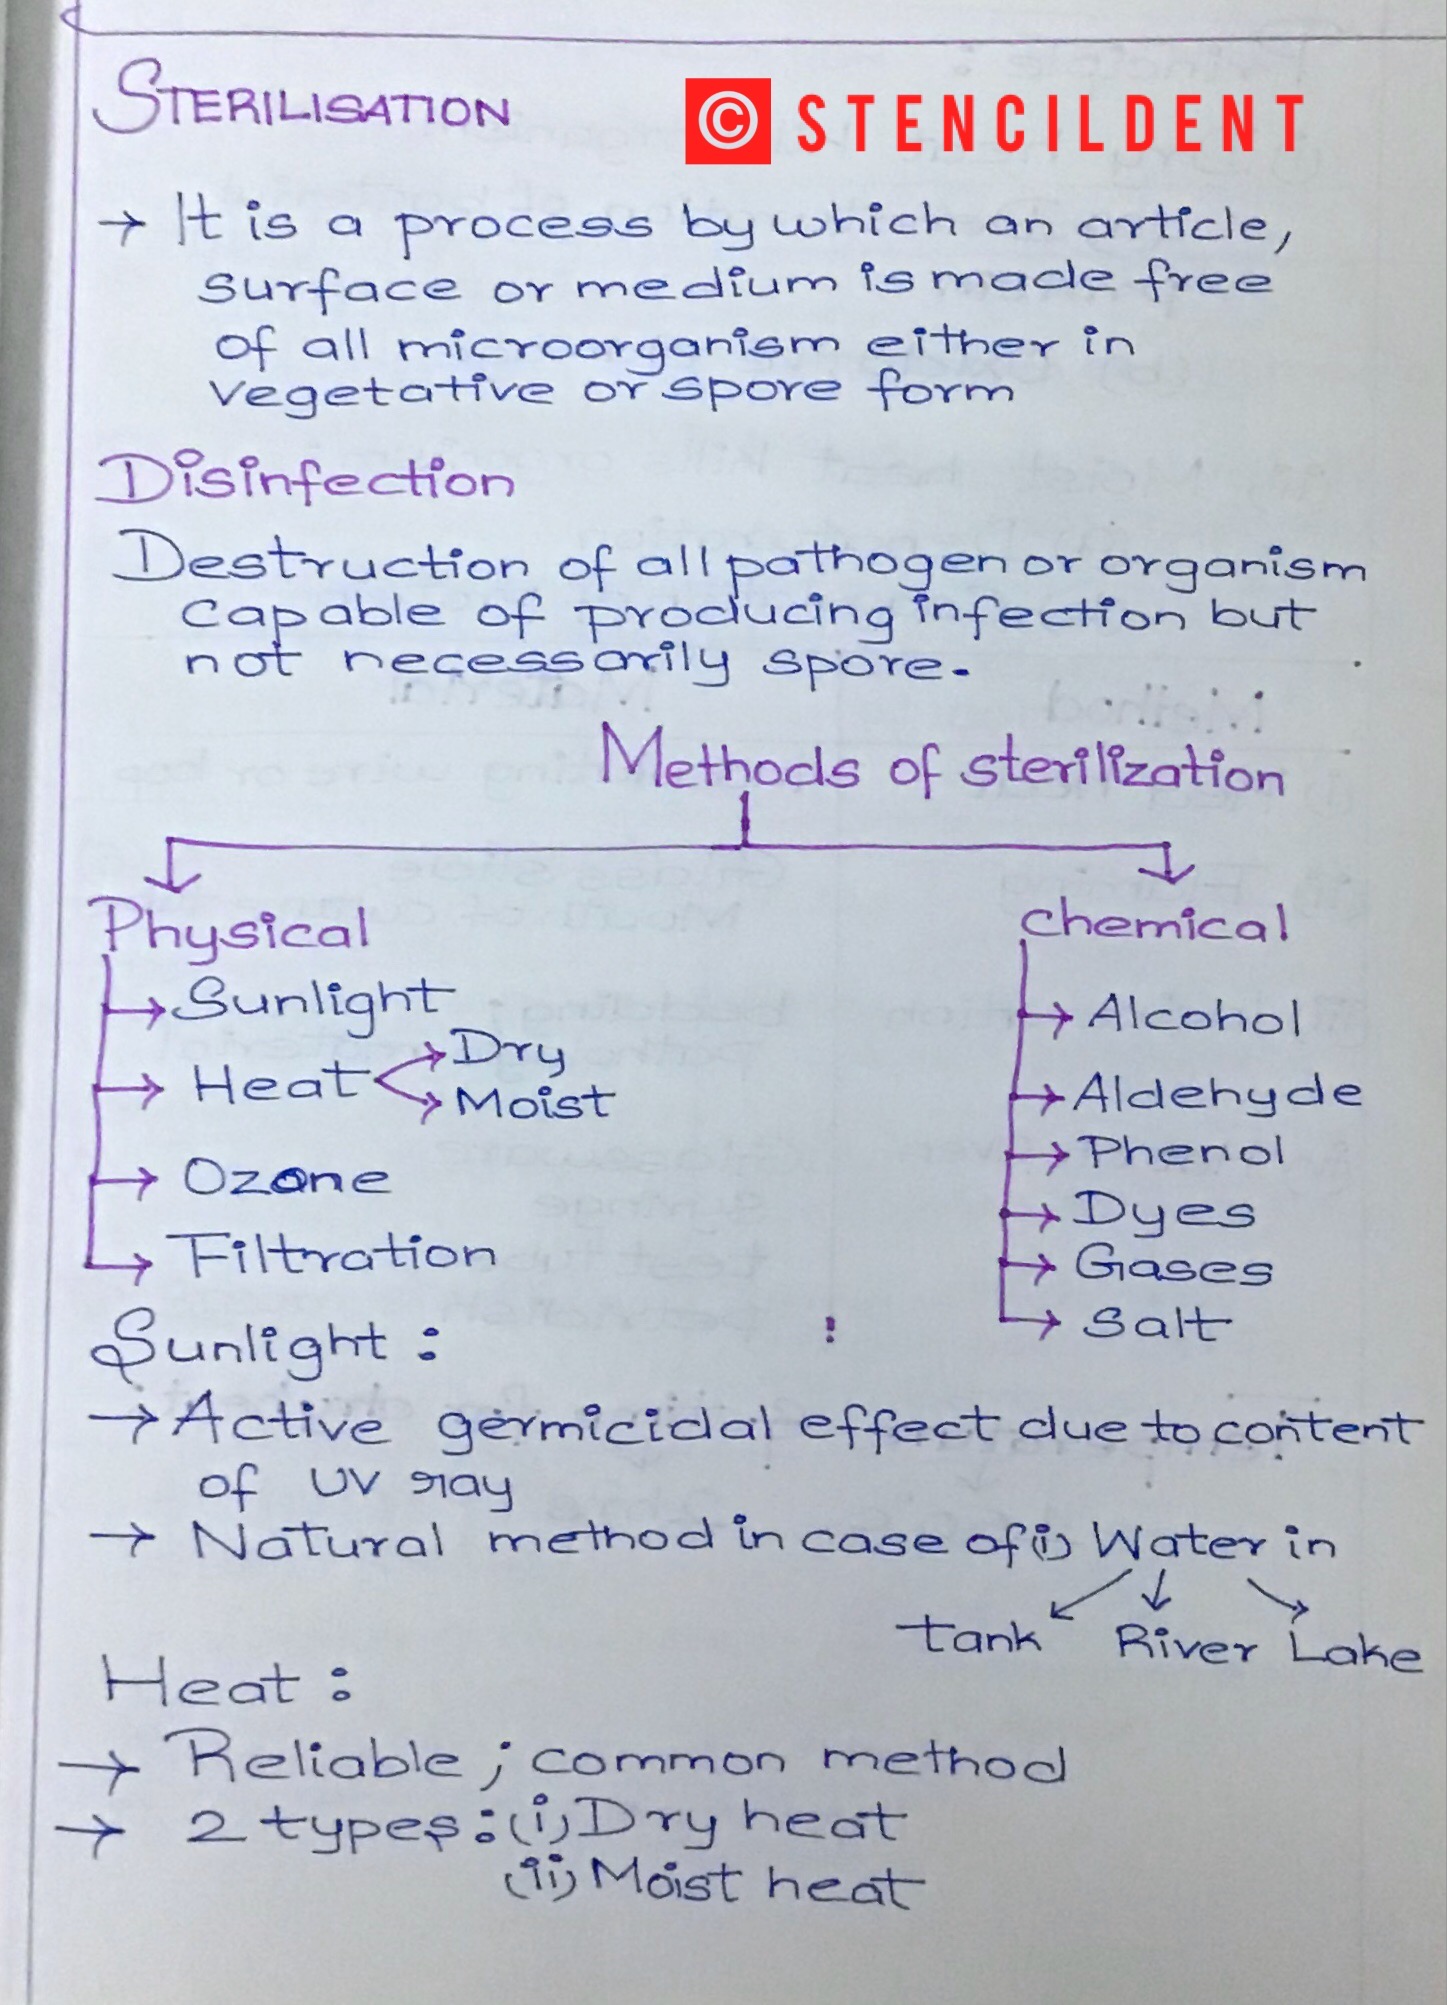 STERILISATION
© STENCILDENT
→ It is a process by which an article,
surface or medium is made free
of all microorganism either in
vegetative or spore form
Disinfection
Destruction of all pathogen or organism
capable of producing infection but
not necessarily spore.
Methods of sterilization
Physical
→ Sunlight
→ Heat → Dry
→ Moist
→ Ozone
→ Filtration
chemical
→ Alcohol
→ Aldehyde
→ Phenol
→ Dyes
→ Gases
→ Salt
Sunlight :
→ Active germicidal effect due to content
of UV ray
→ Natural method in case of (i) Water in
tank River Lake
Heat :
→ Reliable ; common method
→ 2 types : (i) Dry heat
(ii) Moist heat